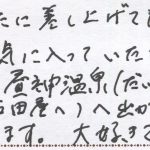 たに差し上げて
気に入っていた
昼神温泉(だい
石田屋へ)へ出か
ます。大好きで